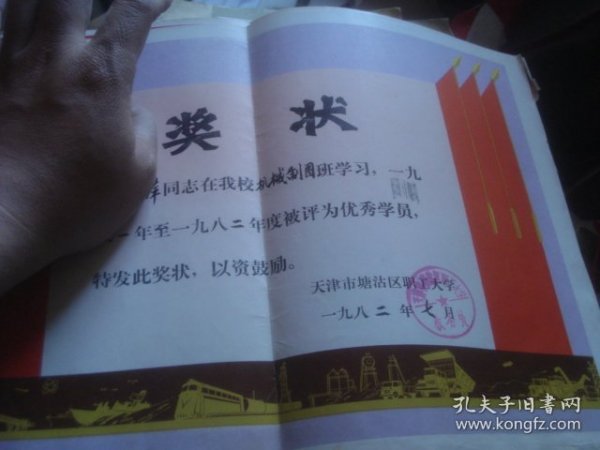 奖 状
同志在我校机械制图班学习，一九
二年至一九八二年度被评为优秀学员，
特发此奖状，以资鼓励。
天津市塘沽区职工大学
一九八二年七月
孔夫子旧书网
www.kongfz.com